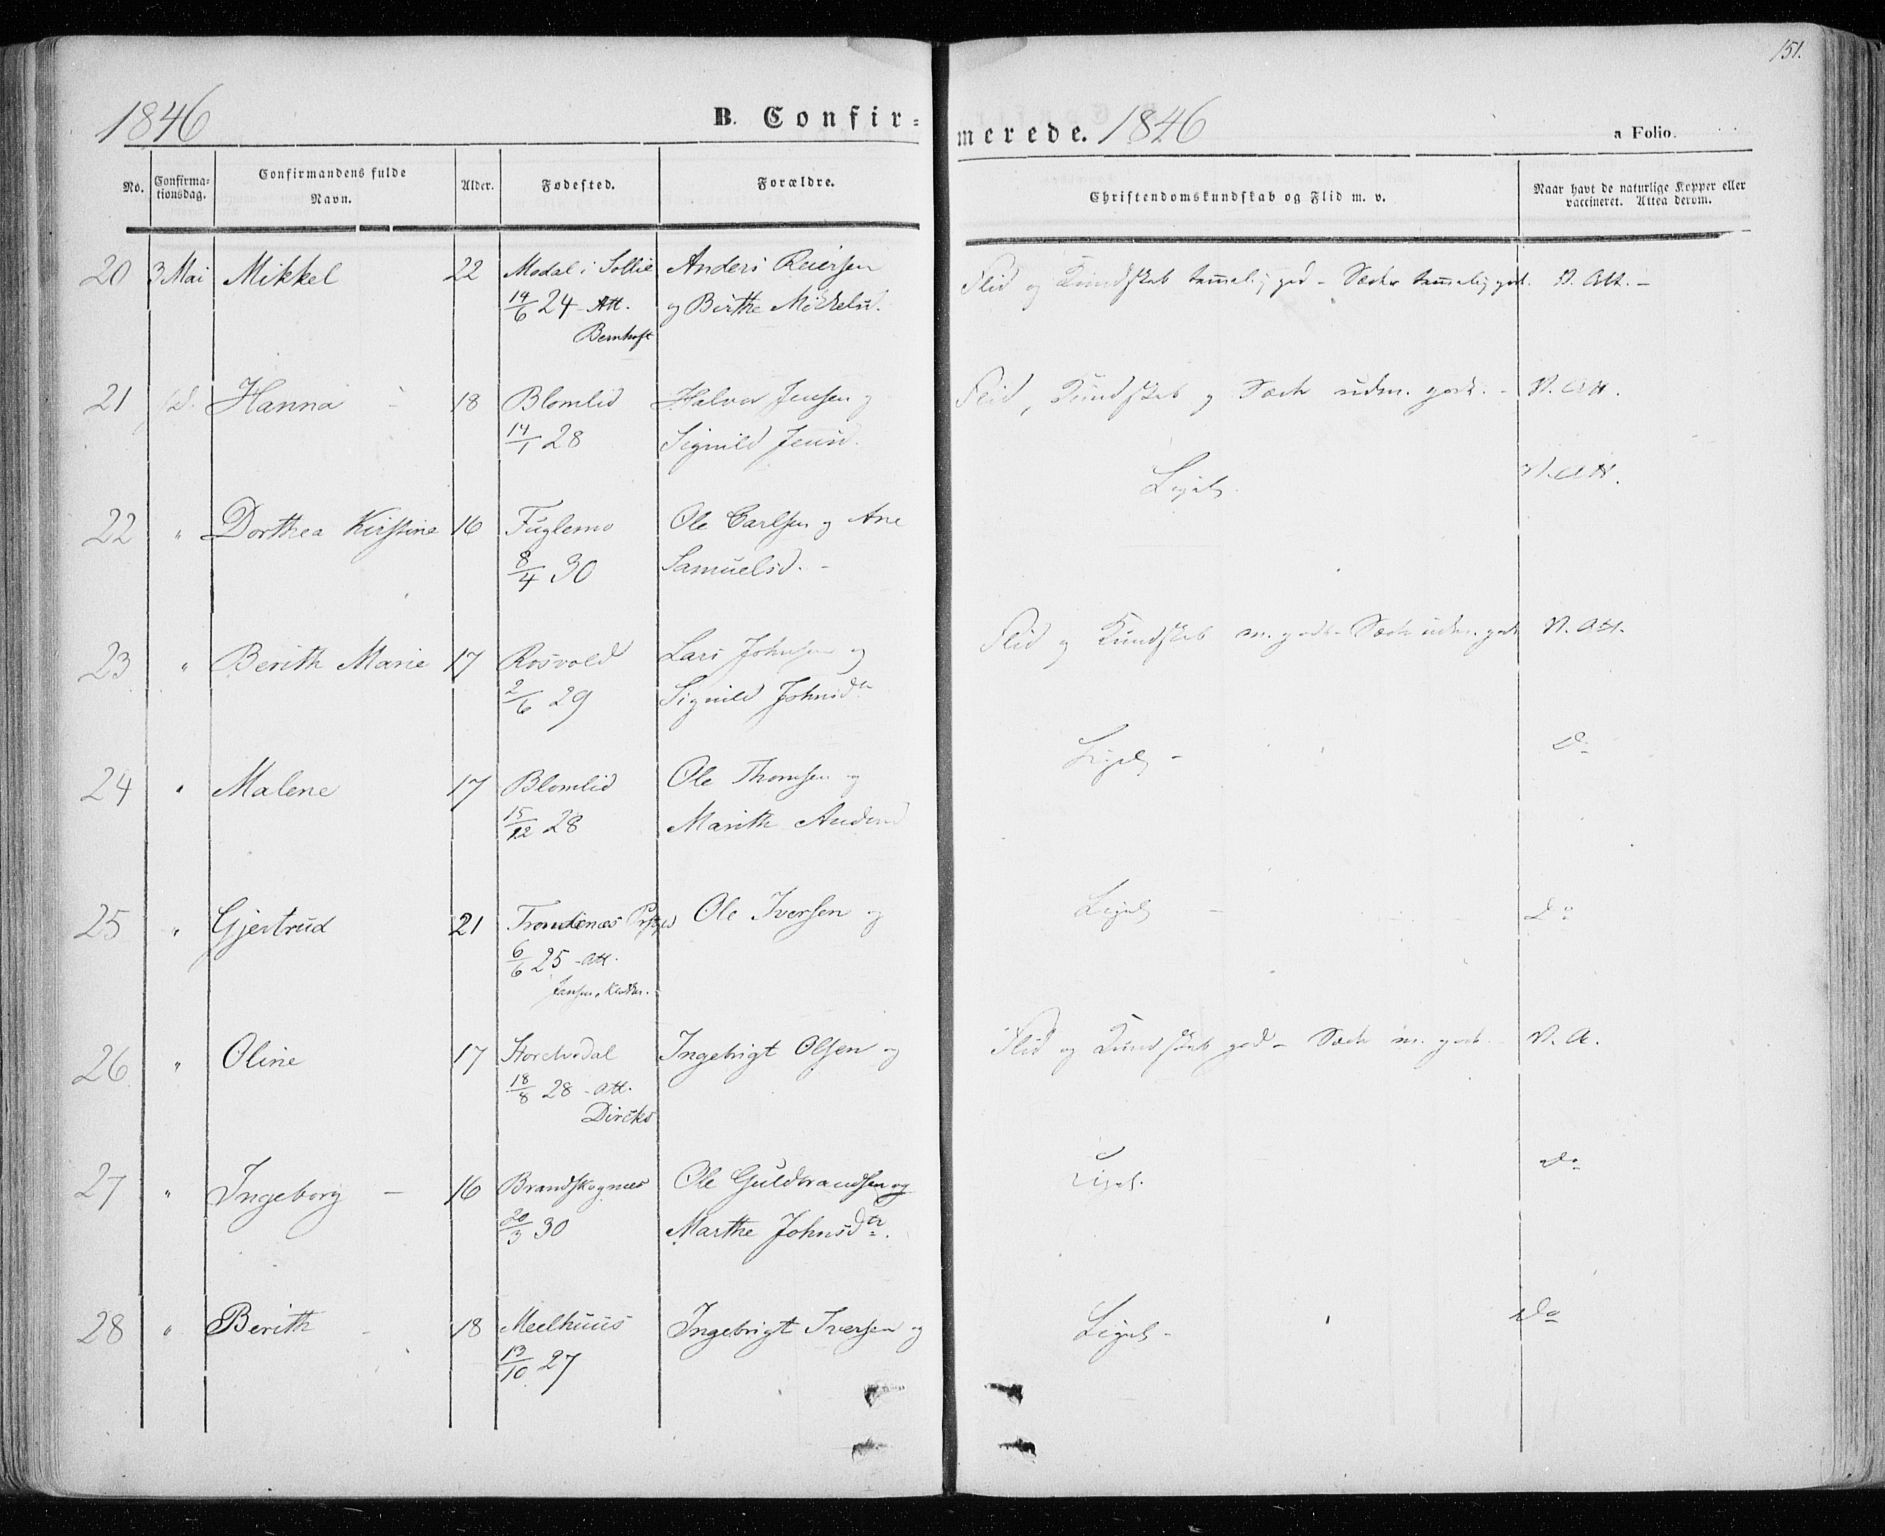 151.
1846 B. Confir-
merede. 1846 a Folio.
No. Confirma-tionsdag. Confirmandens fulde Navn. Alder. Fødested. Forældre. Christendomskundskab og Flid m. v. Naar havt de naturlige Kopper eller vaccineret. Attea derom.
20 3 Mai Mikkel 22 Modal i Sollie Anders Reiersen Flid og Kundskab tammelig god - Sæder tammelig god. V. Att. -
14/6 24 - Att. og Birthe Mickelsd.
Bernhoft
21 d. Hanna - 18 Blomlid Halvor Jensen og Flid, Kundskab og Sæder udm. gode. - V. Att.
14/1 28 Signild Jensd.
22 " Dorthea Kirstine 16 Fuglemo Ole Carlsen og Ane Ligel. V. Att.
8/4 30 Samuelsd. -
23 " Berith Marie 17 Rosvold Lars Johnsen og Flid og Kundskab m. gode - Sæder udm. gode V. Att.
2/6 29 Signild Johnsdtr
24 " Malene 17 Blomlid Ole Thomsen og Ligel. - Do
15/12 28 Marith Andersd
25 " Gjertrud 21 Trondenæs Prstgjd Ole Iversen og Ligel. - Do
6/6 25 - Att.
26 " Oline 17 Ingebrigt Olsen og Flid og Kundskab god - Sæder m. gode. V. A.
18/8 28 - Att.
Dircks
27 " Ingeborg - 16 Brandskognes Ole Guldbrandsen og Ligel. Do
20/3 30 Marthe Johnsdtr.
28 " Berith - 18 Meelhuus Ingebrigt Iversen og Ligel. - Do
13/10 27